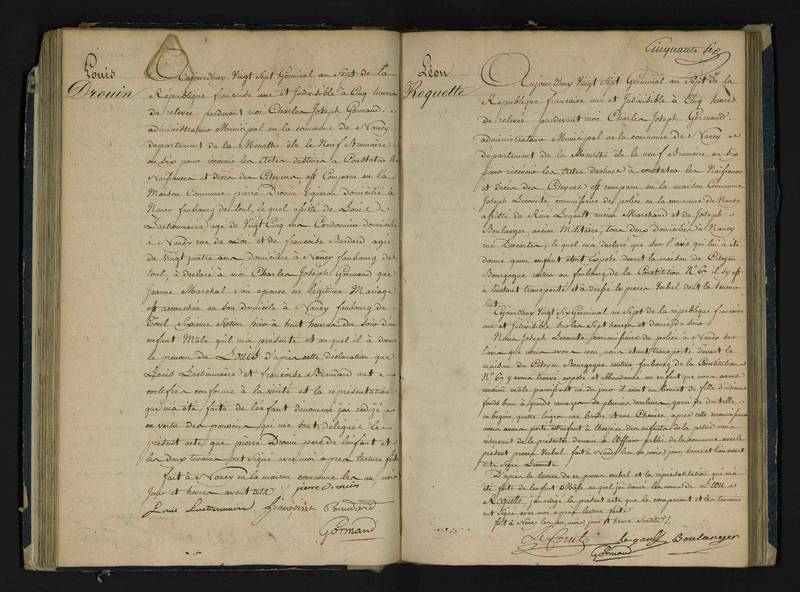 Louis
Drouin
Aujourd'huy Vingt Sept Germinal an Sept de la
Republique francaise une et Indivisible à Cinq heures
de relevée pardevant moi Charles Joseph Gormand
administrateur Municipal en la commune de Nancy
departement de la Meurthe élu le Neuf Brumaire
an six pour recevoir les Actes destinés à Constater les
Naissances et décès des Citoyens est Comparu en la
Maison Commune pierre Drouin Vigneron domicilié à
Nancy faubourg de toul, le quel assisté de Louis
Lactionnaire agé de Vingt Cinq ans Cordonnier domicilié
à Nancy rue de et de francoise agée
de Vingt quatre ans domiciliée à Nancy faubourg de
toul, à déclaré à moi Charles Joseph Gormand que
Jeanne Marchal son épouse en légitime Mariage
est accouchée en son domicile à Nancy faubourg de
Toul Sixieme Section hier à huit heures du Soir d'un
enfant Mâle qu'il m'a presenté et au quel il a donné
le prenom de Louis d'après cette déclaration que
Louis Lactionnaire et francoise ont
certifiée conforme à la vérité et la représentation
qui m'a été faite de l'enfant denommé j'ai rédigé
en vertu des pouvoirs qui me sont délégués le
présent acte, que pierre Drouin pere de l'enfant et
les deux temoins ont Signé avec moi apres lecture fait
fait à Nancy en la maison commune les an mois
Jour et heures avant dits
pierre Drouin
Louis francoise
Gormand
Cinquante six
Léon
Roquette
Aujourd'huy Vingt Sept Germinal an Sept de la
Republique francaise une et Indivisible à Cinq heures
de relevée pardevant moi Charles Joseph Gormand
administrateur Municipal en la commune de Nancy
departement de la Meurthe élu le neuf Brumaire an six
pour recevoir les Actes destinés à constater les Naissances
et décès des Citoyens est comparu en la maison Commune
Joseph Lecomte, commissaire de police en la commune de Nancy
assisté de René Legault, ancien Marchand et de Joseph
Boulanger, ancien Militaire, tous deux domiciliés à Nancy
rue , le quel m'a déclaré que sur l'avis qui lui a été
donné qu'un enfant étoit exposé devant la maison du Citoyen
Bourgogne rentier au faubourg de la Constitution N.° 67 il s'y est
à l'instant transporté et à dressé le procès Verbal dont la teneur
suit
Cejourd'huy Vingt Six Germinal an Sept de la republique francaise
une et Indivisible sur les Sept heures et demie du Soir
Nous Joseph Lecomte commissaire de police à Nancy sur
l'avis que nous avons reçu, nous étant transporté devant la
maison du Citoyen Bourgogne rentier faubourg de la Constitution
N.° 67 y avons trouvé exposé et abandonné un enfant que nous avons
reconnu mâle
fonds brun à grands ramages de plusieurs couleurs, garni de dentelle,
un béguin, quatre langes, une bande et une Chemise après cette reconnoissance
nous avons porté cet enfant à l'hospice des enfants de la patrie
du présent demain à l'officier public de la commune avec le
présent procès Verbal. fait à Nancy les an, mois, jour, heure et lieu avant
dits Signé Lecomte
D'après la lecture de ce procès verbal et la représentation qui m'a
été faite de l'enfant Mâle au quel j'ai donné les noms de Léon
Roquette, j'ai rédigé le présent acte que le comparant et les temoins
ont Signé avec moi après lecture faite
fait à Nancy les an, mois, jour et heure susdits
Lecomte Legault Boulanger
Gormand